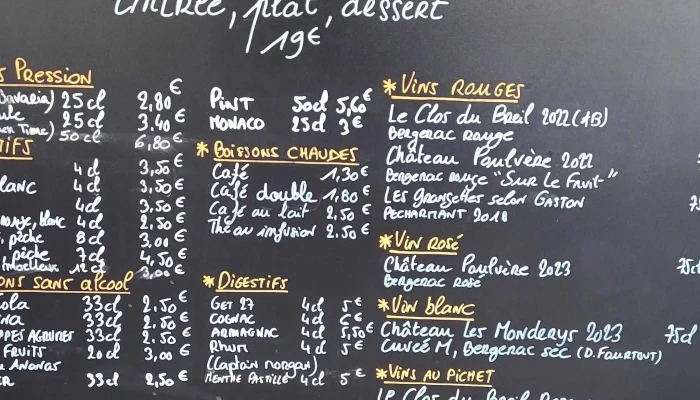 entrée, plat, dessert
19€
PRESSION
Bavaria) 25cl 2,80 €
25cl 3,40 €
50cl 6,80 €
4cl 3,50 €
BLANC 4cl 3,50 €
4cl 3,50 €
rouge, blanc 4cl 2,50 €
pêche 8cl 3,00 €
pêche 7cl 4,50 €
moelleux 12cl 3,00 €
SANS alcool
33cl 2,50 €
33cl 2,50 €
AGRUMES 33cl 2,50 €
FRUITS 20cl 3,00 €
ANANAS
33cl 2,50 €
PINT 50cl 5,60 €
MONACO 25cl 3 €
* BOISSONS CHAUDES
Café 1,30 €
Café double 1,80 €
Café au lait 2,50 €
Thé ou infusion 2.50 €
* DIGESTIFS
GET 27 4cl 5 €
COGNAC 4cl 6 €
ARMAGNAC 4cl 5,50 €
Rhum 4cl 5 €
(Captain morgan)
MENTHE PASTILLE 4cl 5 €
* VINS ROUGES
Le Clos du Breil 2022 (AB)
Bergerac rouge
Château Poulvère 2022
Bergerac rouge "Sur Le Fruit"
LES Grangettes selon GASTON
PECHARMANT 2018
* VIN ROSÉ
Château Poulvère 2023
Bergerac rosé
* VIN blanc
Château Les Monderys 2023 75cl
Cuvée M, Bergerac sec (D. FAURTOUT)
* VINS AU PICHET
Le Clos du Breil